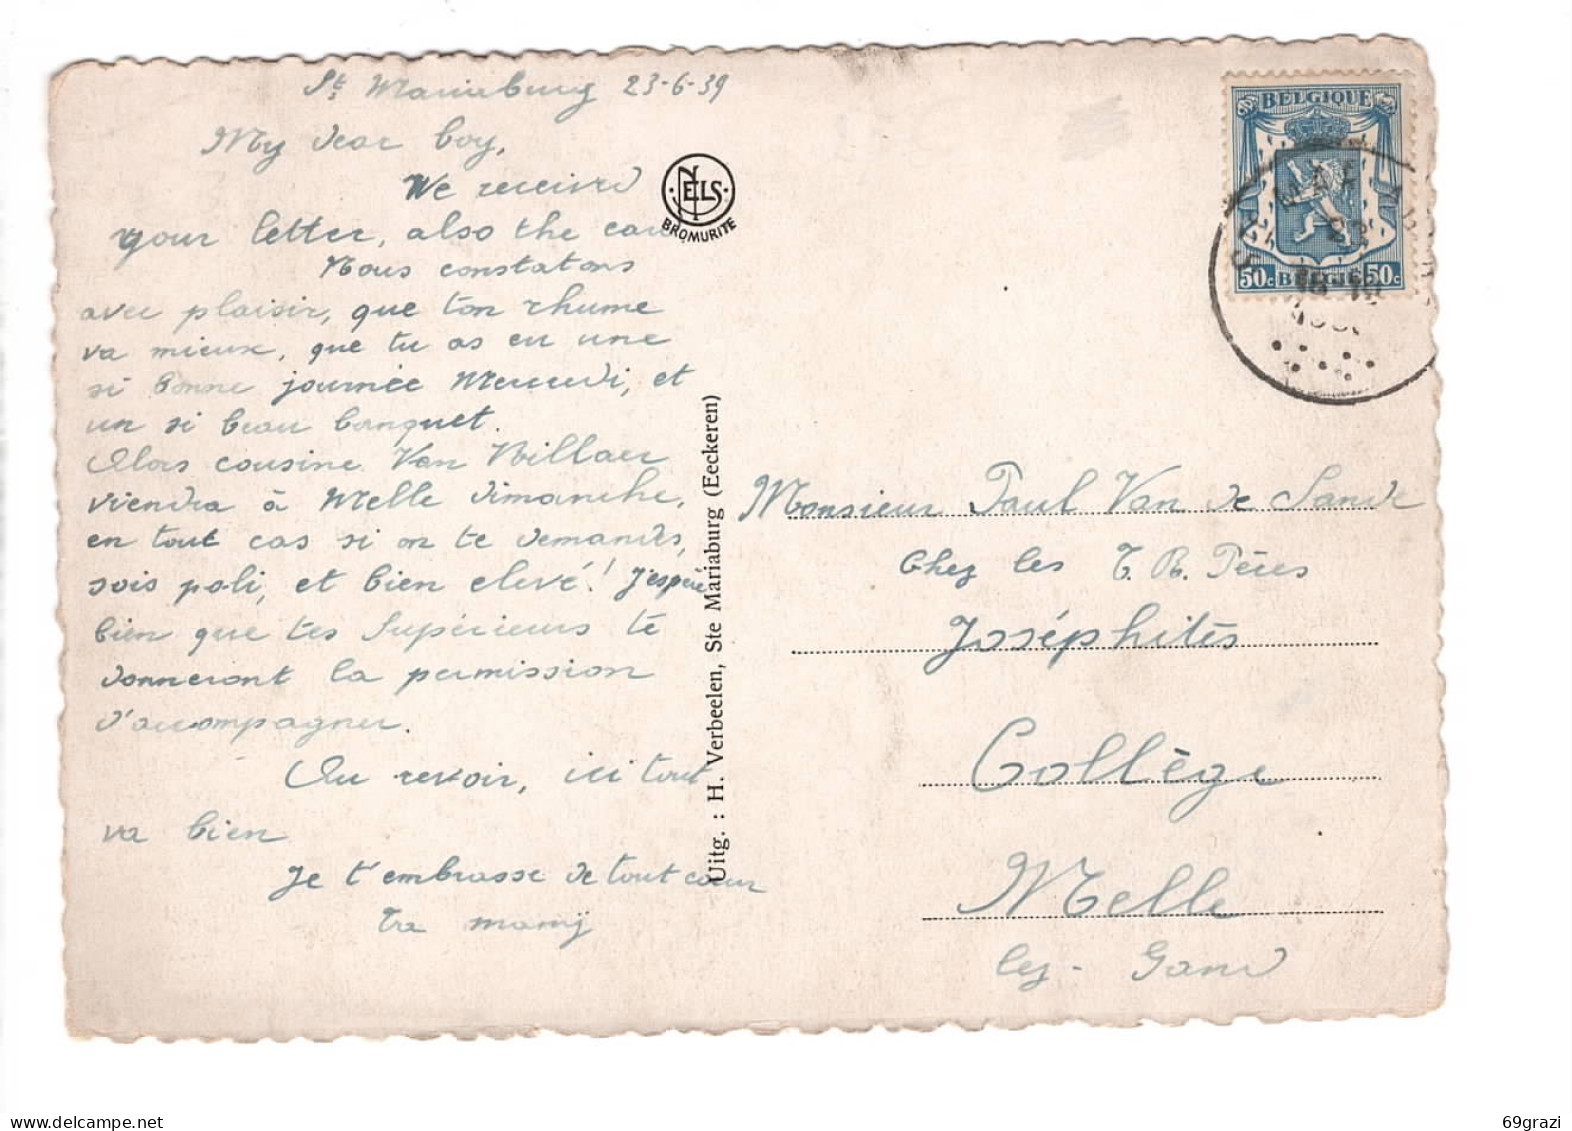 St. Mariaburg 23-6-39
My dear boy,
We received
your letter, also the card
Nous constatons
avec plaisir, que ton rhume
va mieux, que tu as eu une
si bonne journée Mercredi, et
un si beau banquet.
Alors cousine Van Willaer
viendra à Melle dimanche,
en tout cas si on te demandes,
sois poli, et bien elevé! J'espère
bien que tes Supérieurs te
donneront la permission
d'accompagner.
Au revoir, ici tout
va bien
Je t'embrasse de tout cœur
Ta mamy
NELS
BROMURITE
Uitg. : H. Verbeelen, Ste Mariaburg (Eeckeren)
BELGIQUE
50c BELGIE 50c
Monsieur Paul Van de Sande
Chez les T. R. Pères
Joséphites
Collège
Melle
lez - Gand
69grazi